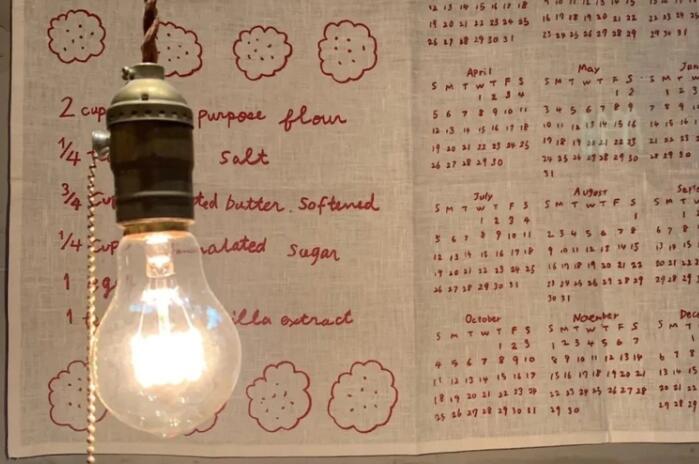 2 purpose flour
1/4 Salt
3/4 butter. Softened
1/4 Sugar
1
1 extract
12 13 14 15 16 17 18
19 20 21 22 23 24 25
26 27 28 29 30 31
16 17 18 19 20 21 22
23 24 25 26 27 28 29
22 23 24
29 30 31
April
S M T W T F S
1 2 3 4
5 6 7 8 9 10 11
12 13 14 15 16 17 18
19 20 21 22 23 24 25
26 27 28 29 30
May
S M T W T F S
1 2
3 4 5 6 7 8 9
10 11 12 13 14 15 16
17 18 19 20 21 22 23
24 25 26 27 28 29 30
31
S M T W
1 2 3
7 8 9
14 15 16
28 29 30
July
S M T W T F S
1 2 3 4
5 6 7 8 9 10 11
12 13 14 15 16 17 18
19 20 21 22 23 24 25
26 27 28 29 30 31
August
S M T W T F S
1
2 3 4 5 6 7 8
9 10 11 12 13 14 15
16 17 18 19 20 21 22
23 24 25 26 27 28 29
30 31
S M T
6 7 8
13 14 15
20 21 22
October
S M T W T F S
1 2 3
4 5 6 7 8 9 10
11 12 13 14 15 16 17
18 19 20 21 22 23 24
25 26 27 28 29 30 31
November
S M T W T F S
1 2 3 4 5 6 7
8 9 10 11 12 13 14
15 16 17 18 19 20 21
22 23 24 25 26 27 28
29 30
S M T
1
6 7 8
13 14 15